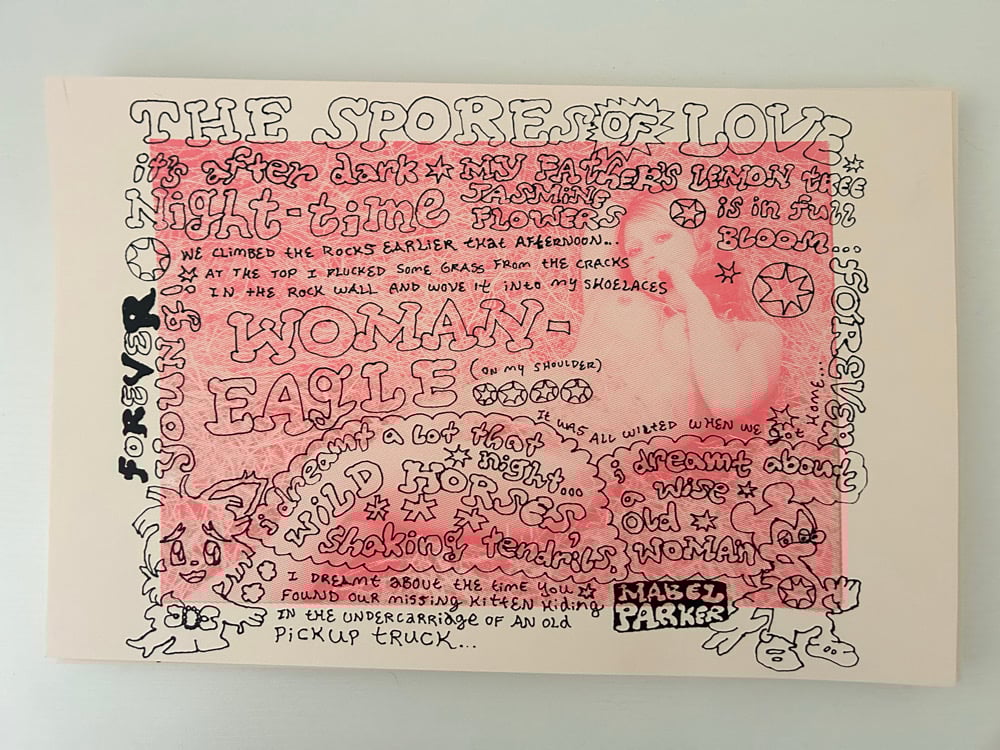 THE SPORES OF LOVE
it's after dark
Night-time
MY FATHER'S LEMON tREE
is in full
BLOOM...
JASMiNE
FLOWERS
WE CLIMBED tHE ROCKS EARLIER tHat AFTERNOON...
At tHE TOP I PLUCKED SOME GRASS FROM tHE CRACKS
IN tHE ROCK WALL AND WOVE it iNto my SHOELACES
WOMAN-
EAgLE
(ON MY SHOULDER)
It WAS ALL WiLtED WHEN WE got Home...
i dreamt a lot that
night...
WiLD HORSES
shaking tendrils.
i dreamt about
a wise
old
WOMAN
I DREAMt ABOUt tHE tIME YOU
FOUND OUR missiNg KittEN Hiding
IN tHE UNDERCARRidgE OF AN Old
PicKUP tRUCK...
MABEL
PARKER
FOREVER
young!
FOREVER